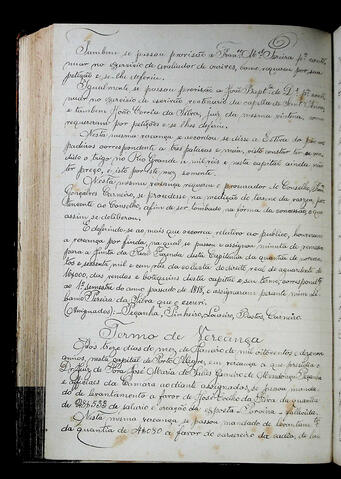 Tambem se passou provisão a Franco. Mel. Pereira pa. conti-
nuar no exercicio de avaliador de caixas, como requereu por sua
petição e se lhe deferiu.
Igualmente se passou provisão a João Bapta. de pa. conti-
nuar no exercicio de escrivão
e tambem João Correia da Silva, juiz da mesma vintena, como
requereram por petições e se lhes deferiu.
Nesta mesma vereança e accordou se désse a Estiva do pão aos
padeiros correspondente a tres patacas e meia, visto constar ter se ven-
dido o trigo no Rio Grande a mil réis e nesta capital ainda não
ter preço, e isto por este mez somente.
Nesta mesma vereança requereu o procurador do Conselho, João
Gonçalves Carneiro, se procedesse na medição do terreno da varzea, per-
tencente ao Conselho, afim de ser tombado na fórma da concessão, e que
assim se deliberou.
E deferindo-se ao mais que occorreu relativo ao publico, houveram
a vereança por finda, na qual se passou e assignou minuta de remessa
para a Junta da Real Fazenda desta Capitania da quantia de noven-
ta e sessenta, mil e cem réis da collecta do direito real de aguardente de
16$000, das vendas e botequins desta capital e seu termo, correspondte.
ao 1º semestre do anno passado de 1818, e assignaram perante mim Al-
bino Pereira da Silva que o escrevi.
(Assignados): Peçanha, Pinheiro, Loureiro, Bastos, Carneiro.
Termo de Vereança
Aos treze dias do mez de Janeiro de mil oitocentos e dezenove
annos, nesta capital de Porto Alegre, em vereança a que presidiu o
Dr. Juiz de Fóra José Maria de Salles Gameiro de Mendonça Peçanha
e officiaes da Camara ao diante assignados, se passou manda-
do de levantamento a favor de José Coelho da Silva da quantia
de de salario e creação da exposta Lourina - fallecida.
Nesta mesma vereança se passou mandado de levantamto.
da quantia de 4$080 a favor do carcereiro da cadeia, de cus-